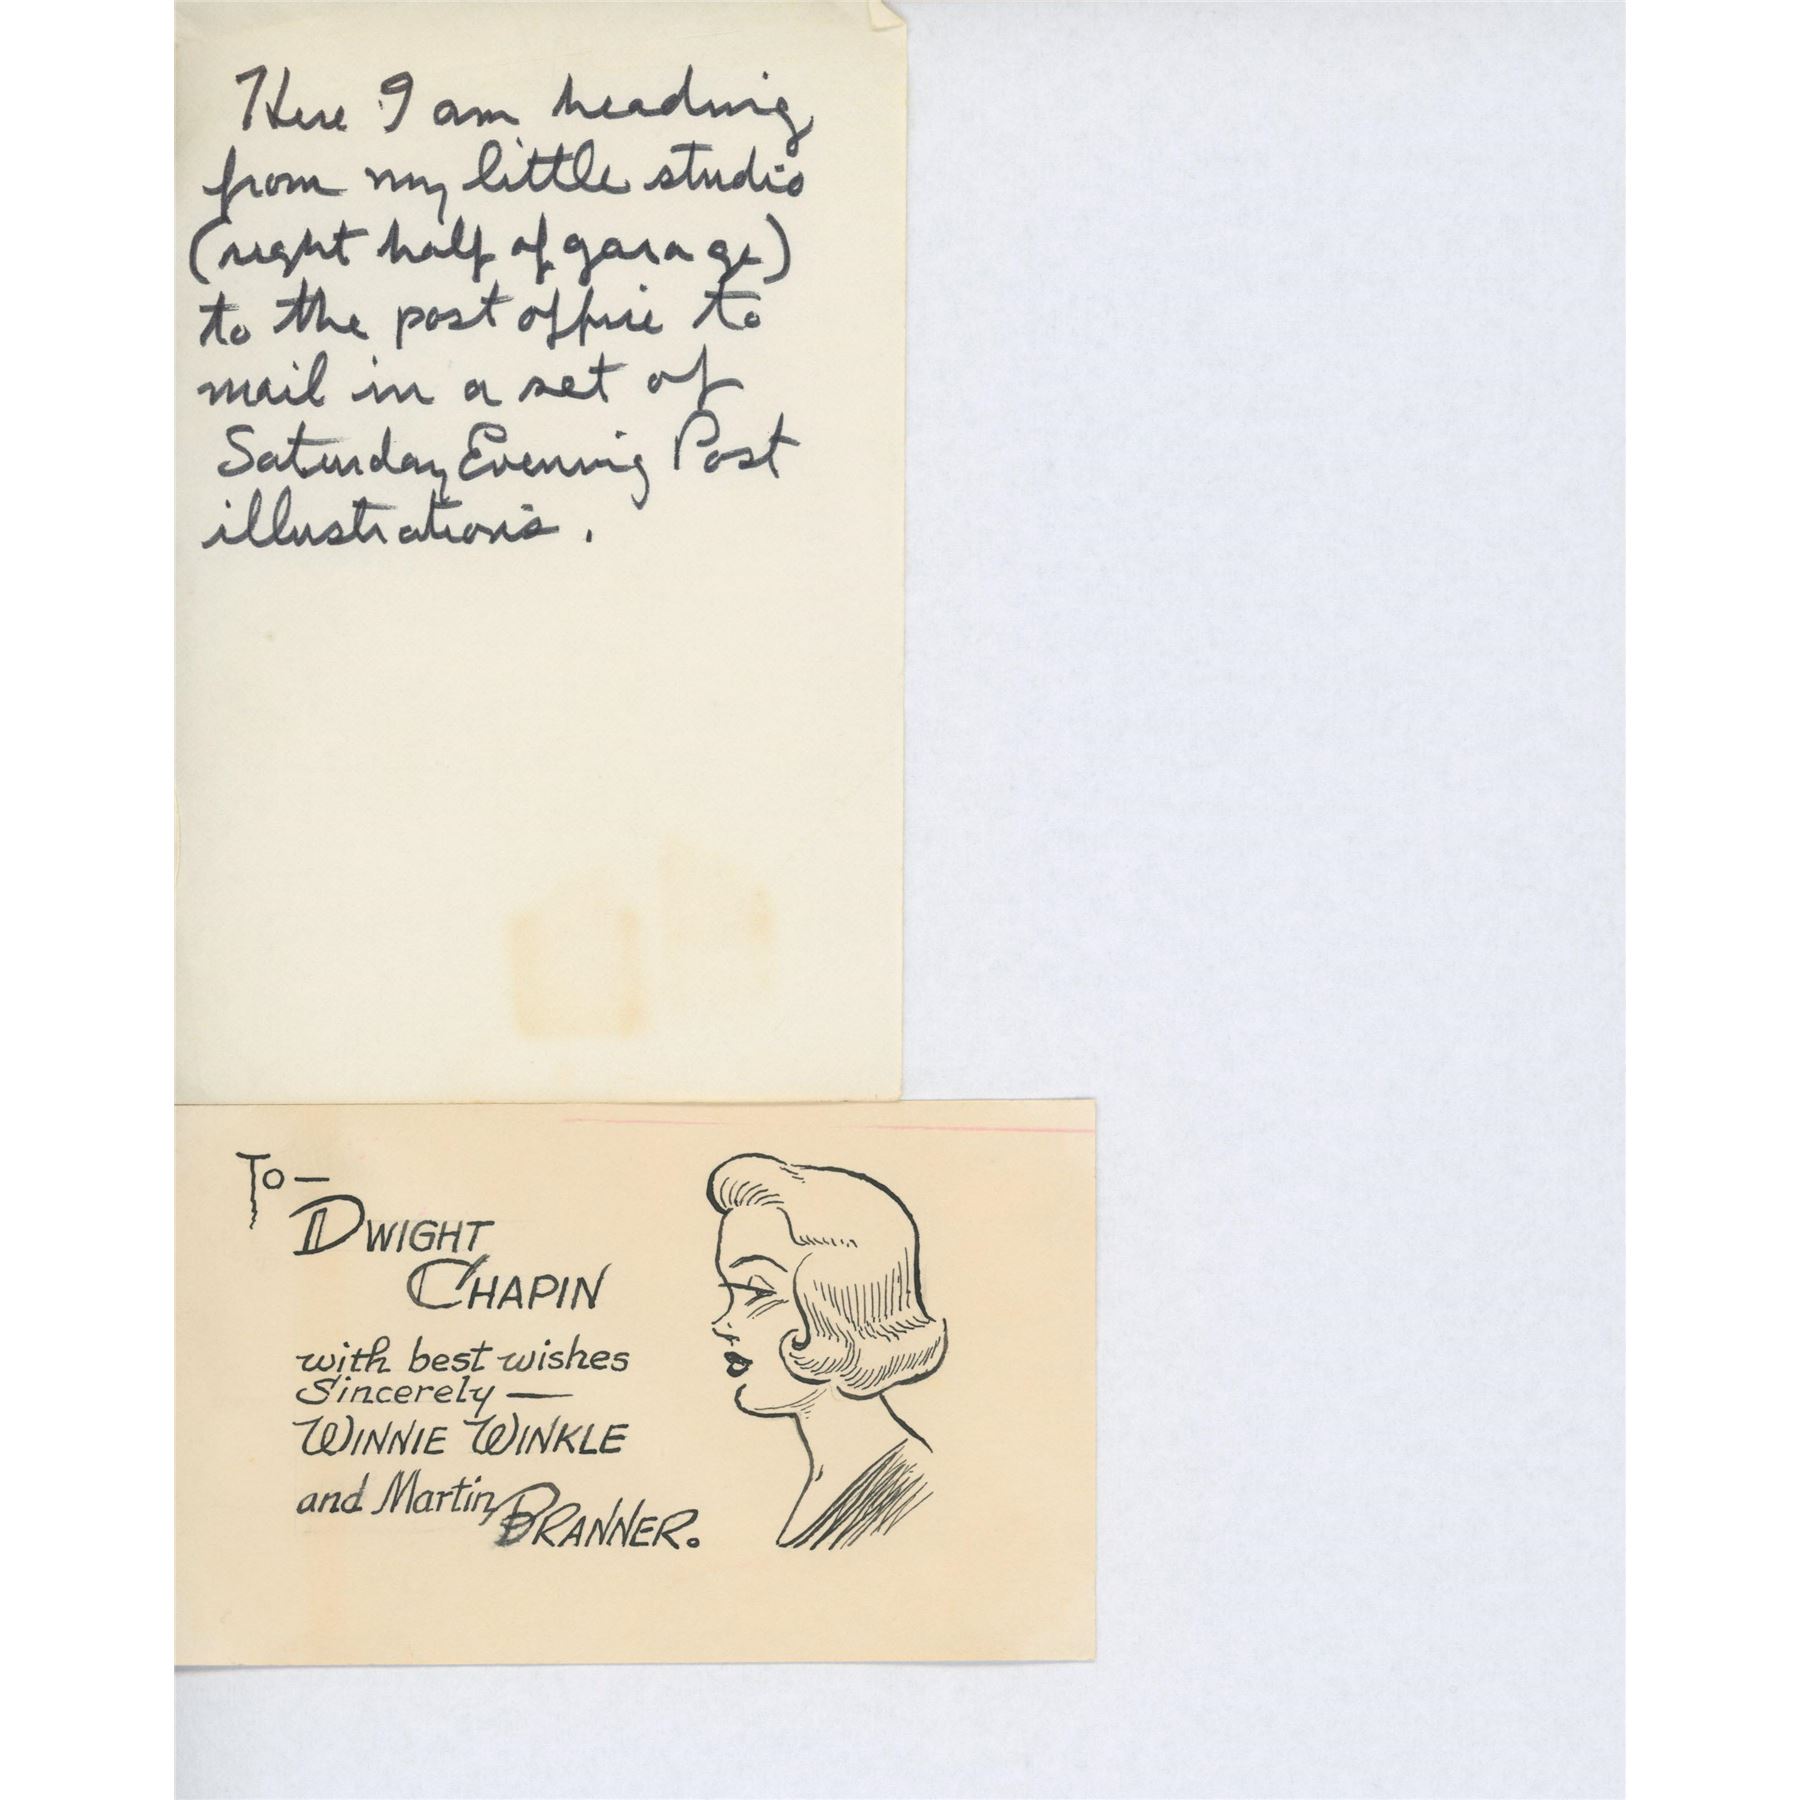 Here I am heading
from my little studio
(right half of garage)
to the post office to
mail in a set of
Saturday Evening Post
illustrations.
To—
DWIGHT
CHAPIN
with best wishes
Sincerely —
WINNIE WINKLE
and Martin
BRANNER.